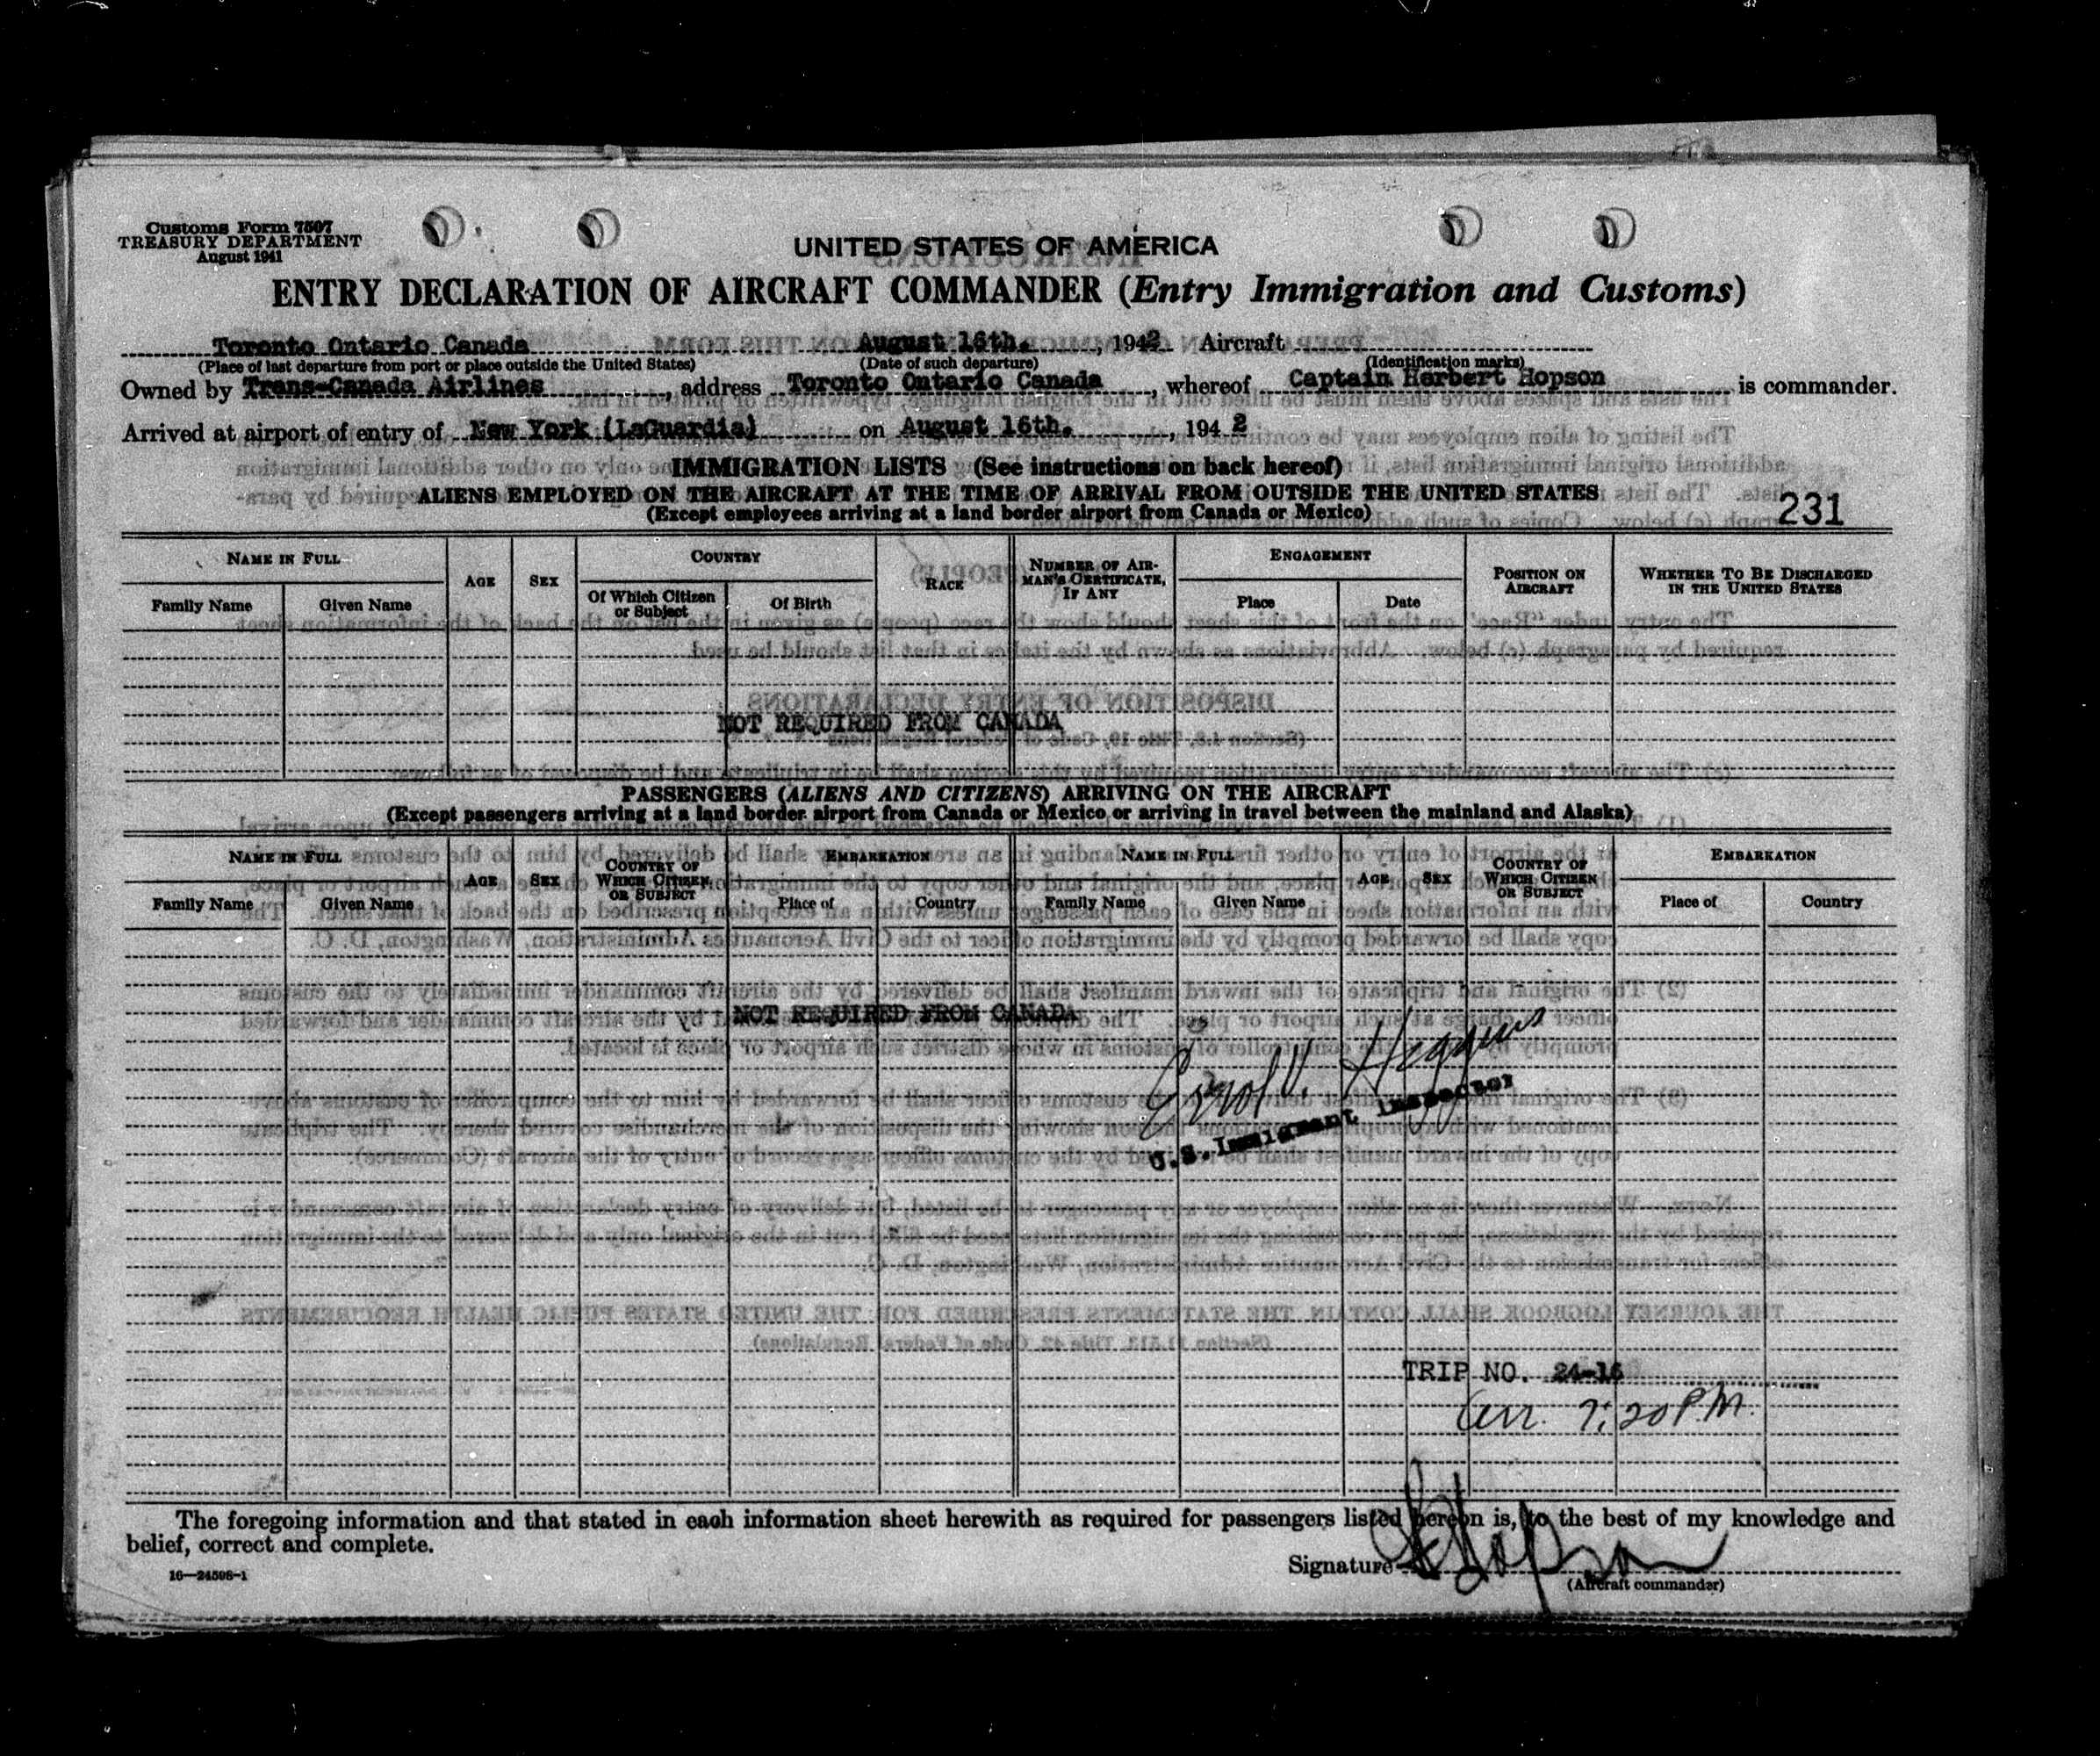 Customs Form 7507
TREASURY DEPARTMENT
August 1941
UNITED STATES OF AMERICA
ENTRY DECLARATION OF AIRCRAFT COMMANDER (Entry Immigration and Customs)
Toronto Ontario Canada August 16th. , 1942 Aircraft
(Place of last departure from port or place outside the United States) (Date of such departure) (Identification marks)
Owned by Trans-Canada Airlines , address Toronto Ontario Canada , whereof Captain Herbert Hopson is commander.
Arrived at airport of entry of New York (LaGuardia) on August 16th. , 1942
IMMIGRATION LISTS (See instructions on back hereof)
ALIENS EMPLOYED ON THE AIRCRAFT AT THE TIME OF ARRIVAL FROM OUTSIDE THE UNITED STATES
(Except employees arriving at a land border airport from Canada or Mexico)
231
NAME IN FULL AGE SEX COUNTRY RACE NUMBER OF AIRMAN'S CERTIFICATE, IF ANY ENGAGEMENT POSITION ON AIRCRAFT WHETHER TO BE DISCHARGED IN THE UNITED STATES
Family Name Given Name Of Which Citizen or Subject Of Birth Place Date
NOT REQUIRED FROM CANADA
PASSENGERS (ALIENS AND CITIZENS) ARRIVING ON THE AIRCRAFT
(Except passengers arriving at a land border airport from Canada or Mexico or arriving in travel between the mainland and Alaska)
NAME IN FULL AGE SEX COUNTRY OF WHICH CITIZEN OR SUBJECT EMBARKATION NAME IN FULL AGE SEX COUNTRY OF WHICH CITIZEN OR SUBJECT EMBARKATION
Family Name Given Name Place of Country Family Name Given Name Place of Country
NOT REQUIRED FROM CANADA
U.S. Immigrant Inspector
TRIP NO. 24-16
arr. 7:20 P.M.
The foregoing information and that stated in each information sheet herewith as required for passengers listed hereon is, to the best of my knowledge and
belief, correct and complete.
Signature Hopson
(Aircraft commander)
16—24598-1